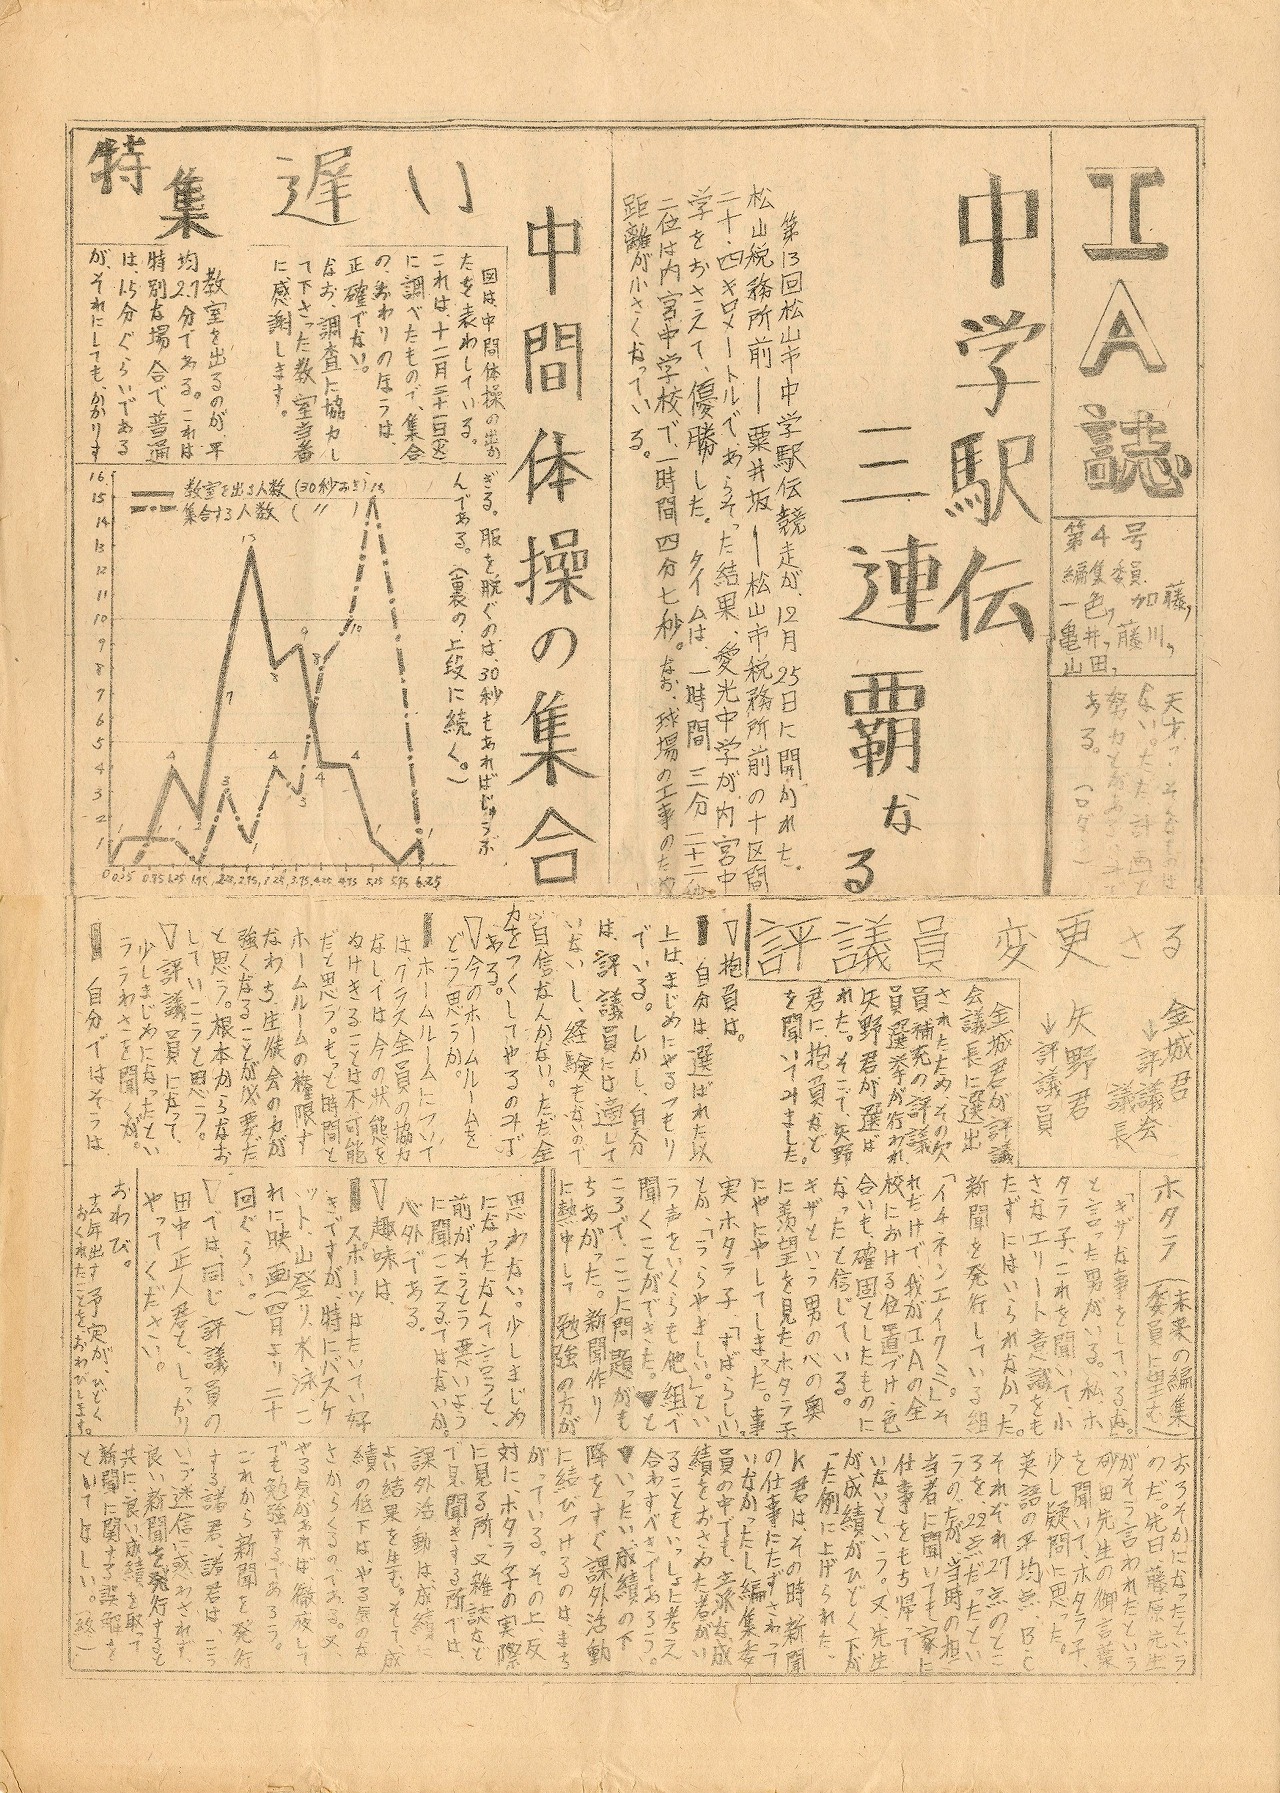 IA誌
第4号
編集委員
一色, 加藤,
亀井, 藤川,
山田,
ある。
中学駅伝
三連覇なる
第13回松山市中学駅伝競走が、12月25日に開かれた。
松山税務所前ー粟井坂ー松山市税務所前の十区間
二十・四キロメートルで、あらそった結果、愛光中学が内宮中
学をおさえて、優勝した。タイムは、一時間三分二十二秒
二位は内宮中学校で、一時間四分七秒。なお、球場の工事のため
距離が小さくなっている。
特集
遅い
中間体操の集合
図は、中間体操の
たを表わしている。
これは、十二月二十一日(火)
に調べたもので、集合
の、おわりのほうは、
正確でない。
なお、調査に協力し
て下さった教室当番
に感謝します。
教室を出るのが、平
均2.7分である。これは
特別な場合で普通
は、1.5分ぐらいである
が、それにしても、かかりす
ぎる。服を脱ぐのは、30秒もあればじゅうぶ
んである。(裏の、上段に続く。)
教室を出る人数(30秒おき)
集合する人数( 〃 )
16
15
14
13
12
11
10
9
8
7
6
5
4
3
2
1
評議員変更さる
金城君
↓評議会
議長
矢野君
↓評議員
金城君が評議
会議長に選出
されたため、その欠
員補充の評議
員選挙が行われ、
矢野君が選ば
れた。そこで、矢野
君に抱負など
を聞いてみました。
▽抱負は。
▮自分は、選ばれた以
上はまじめにやるつもり
でいる。しかし、自分
は、評議員には適して
いないし、経験もないので
自信なんかない。ただ全
力をつくしてやるのみで
ある。
▽今のホームルームを
どう思うか。
▮ホームルームについて
は、クラス全員の協力
なしでは今の状態を
ぬけきることは不可能
だと思う。もっと時間と
ホームルームの権限す
なわち、生徒会の力が
強くなることが必要だ
と思う。根本からなお
していこうと思う。
▽評議員になって、
少しまじめになったとい
ううわさを聞くが。
▮自分ではそうは
思わない。少しまじめ
になったなんて言うと、
前がそうとう悪いよう
に聞こえるではないか。
心外である。
▽趣味は、
▮スポーツはたいてい好
きですが、時にバスケ
ット、山登り、水泳、
れに映画(四月より二十
回ぐらい。)
▽では、同じ評議員の
田中正人君と、しっかり
やってください。
おわび。
去年出す予定が、ひどく
おくれたことをおわびします。
ホタラ(未来の編集委員に望む)
「キザな事をしているな。」
と言った男がいる。私、ホ
タラ子、これを聞いて、小
さなエリート意識をも
たずにはいられなかった。
新聞を発行している組
「イチネンエイクミ」。そ
れだけで、我がIAの全
校における位置づけ、色
合いも、確固としたものに
なったと信じている。
キザという男の心の奥
に羨望を見たホタラ子
にやにやしてしまった。事
実ホタラ子、「すばらしい」
とか、「うらやましい。」とい
う声をいくらも他組で
聞くことができた。▼と
ころで、ここに問題がも
ちあがった。新聞作り
に熱中して勉強の方が
おろそかになったという
のだ。先日藤原先生
がそう言われたという
砂田先生の御言葉
を聞いて、ホタラ子、
少し疑問に思った。
英語の平均点、B・C
それぞれ27点のとこ
ろを、22点だったとい
うのだが、当時の担
当者に聞いても家に
仕事をもち帰って
いないという。又、先生
が成績がひどく下が
った例に上げられた
K君は、その時新聞
の仕事にたずさわって
いなかったし、編集委
員の中でも、立派な成
績をおさめた者がい
ることもいっしょに考え
合わすべきであろう。
▼いったい、成績の下
降をすぐ課外活動
に結びつけるのはまち
がっている。その上、反
対に、ホタラ子の実際
に見る所、又雑談など
で見聞きする所では、
課外活動は、成績に
よい結果を生む。そして、成
績の低下は、やる気のな
さからくるのである。又、
やる気があれば徹夜して
でも勉強するであろう。
これから新聞を発行
する諸君、諸君は、こう
いう迷信に惑わされず、
良い新聞を発行すると
共に、良い成績を取って
新聞に関する誤解を
といてほしい。(終)